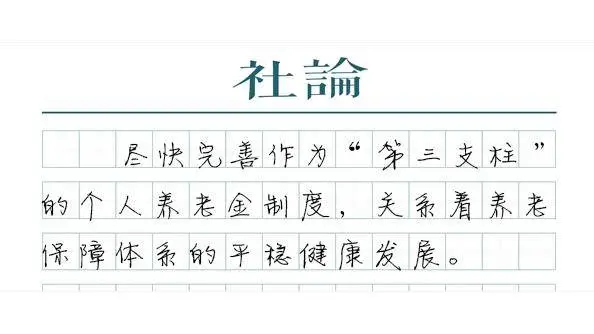 社論
尽快完善作为“第三支柱”
的个人养老金制度，关系着养老
保障体系的平稳健康发展。